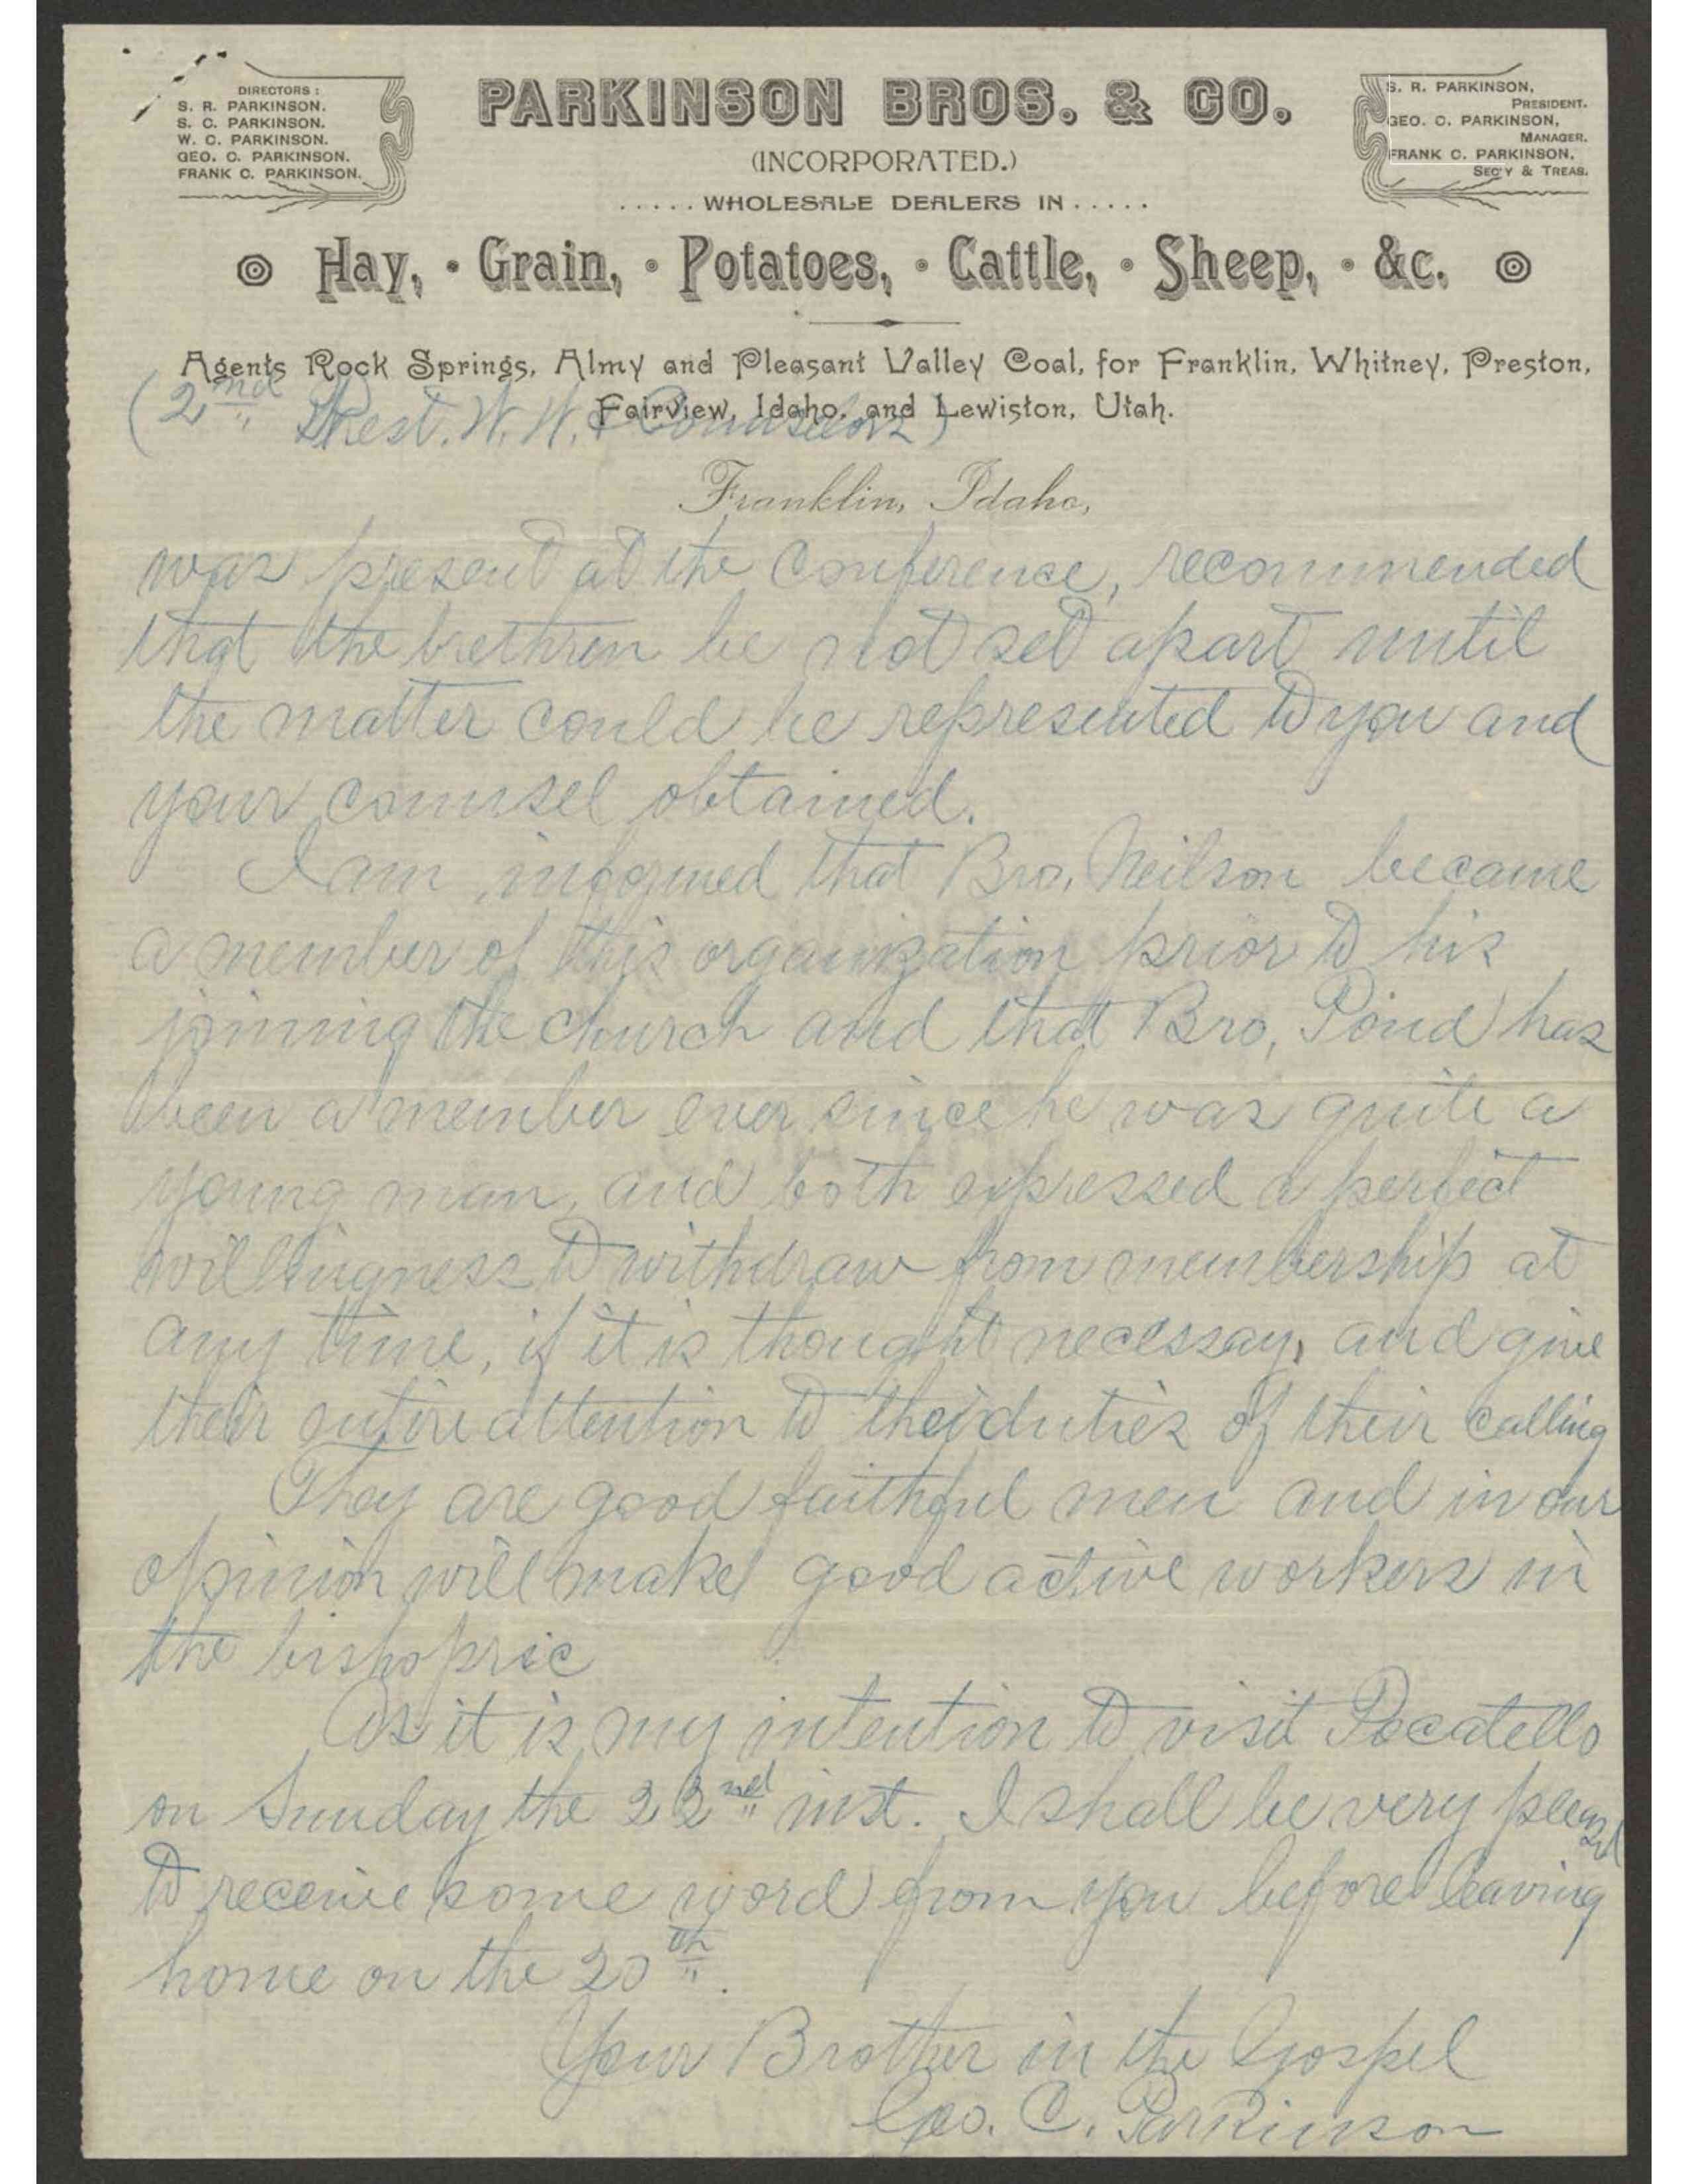 DIRECTORS:
S. R. PARKINSON.
S. C. PARKINSON.
W. C. PARKINSON.
GEO. C. PARKINSON.
FRANK C. PARKINSON.
PARKINSON BROS. & CO.
(INCORPORATED.)
..... WHOLESALE DEALERS IN .....
S. R. PARKINSON,
PRESIDENT.
GEO. C. PARKINSON,
MANAGER.
FRANK C. PARKINSON,
SEC'Y & TREAS.
Hay, · Grain, · Potatoes, · Cattle, · Sheep, · &c.
Agents Rock Springs, Almy and Pleasant Valley Coal, for Franklin, Whitney, Preston,
Fairview, Idaho, and Lewiston, Utah.
(2nd Prest. W. W. & Counselors)
Franklin, Idaho,
was present at the conference, recommended
that the brethren be not set apart until
the matter could be represented to you and
your counsel obtained.
I am informed that Bro. Neilson became
a member of this organization prior to his
joining the church and that Bro. Pond has
been a member ever since he was quite a
young man, and both expressed a perfect
willingness to withdraw from membership at
any time, if it is thought necessay, and give
their entire attention to the duties of their calling
They are good faithful men and in our
opinion will make good active workers in
the bishopric
As it is my intention to visit Pocatello
on Sunday the 22nd inst. I shall be very pleased
to receive some word from you before leaving
home on the 20th.
Your Brother in the Gospel
Geo. C. Parkinson